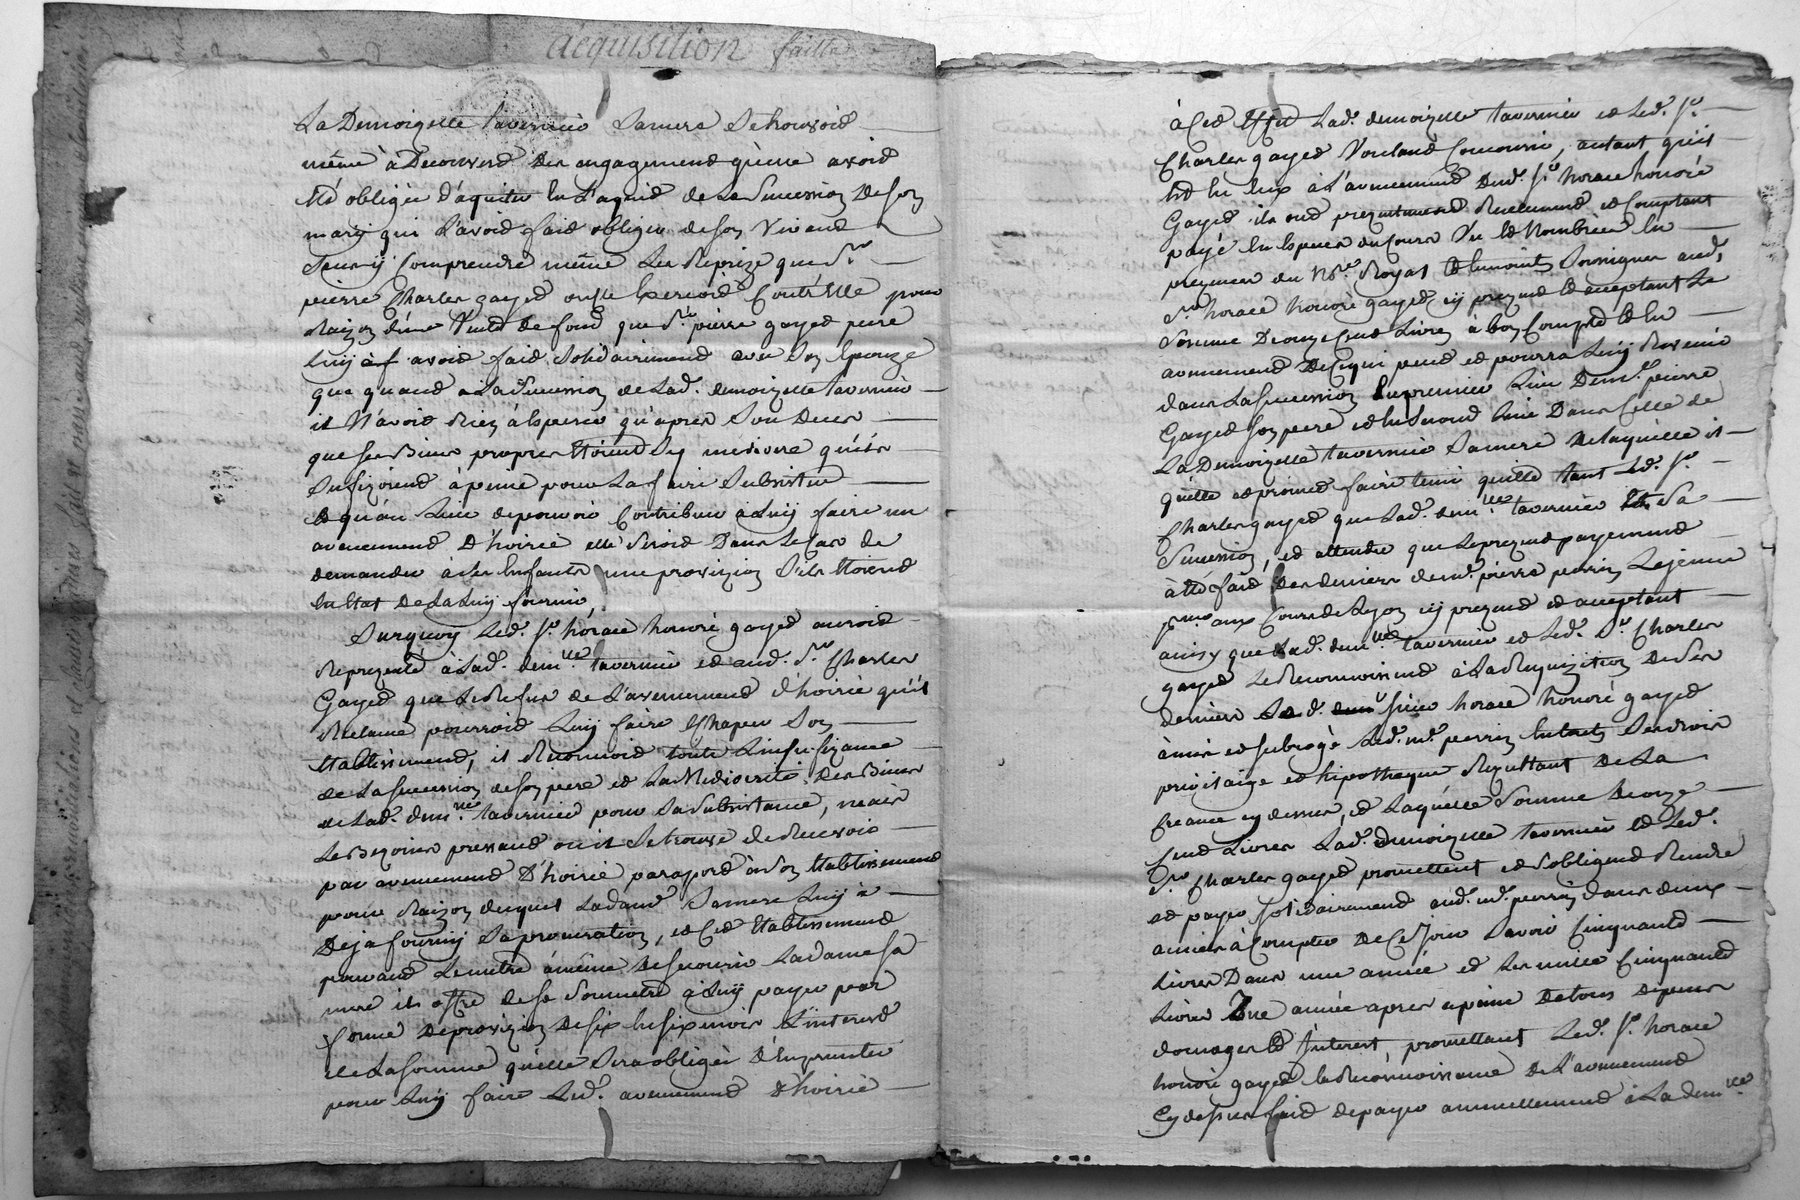 acquisition faitte
La Demoizelle tavernier Sa mere Se trouvoid
même à Decouverd Des engagemend qu'elle avoid
été obligée d'aquiter En l'aquid de La Sucession De son
mary qui L'avoid faid obliger de son Vivand
Sans y Comprendre même Les Reprize que Sr
pierre Charles gayed ouste Exercé Contr'Elle pour
Raizon d'une Vente de fond que Sr pierre gayed pere
Luy avoid faid Solidairemend avec Son Epouze
que quand a La Sucession de Lad. demoizelle tavernier
il N'avoid Rien à Esperer qu'apres Son Deces
que ses Biens propres Etoiend Sy mediocre qu'ils
Sufizoiend à peine pour La faire Subsister
Et qu'au Lieu de pouvoir Contribuer à Luy faire un
avancemend D'hoirie elle Seroid Dans Le Cas de
demander a Ses Enfants une provizion S'ils Etoiend
En Etat De La Luy fournir,
Surquoy Led. Sr horace honoré gayed auroid
Reprezenté à Lad. demlle tavernier et aud. Sr Charles
Gayed que Le Refus de L'avancemend d'hoirie qu'il
Reclame pourroid Luy faire Echaper Son
Etablissemend, il Reconnoid toute L'insufizance
de La Sucession de son pere et La Mediocrité Des Biens
de Lad. demlle tavernier pour Sa Subsistance, mais
Le Bezoin pressand ou il Se trouve de Recevoir
par avancemend D'hoirie par raport à Son Etablissemend
pour Raizon duquel La dame Sa mere Luy a
Deja fourny Sa procuration, et Ced Etablissemend
pouvand Le metre à même De Secourir La dame sa
mere il offre de se Soumetre à Luy payer par
forme De provizion De six En six mois L'interest
de La somme qu'elle Sera obligée D'Emprunter
pour Luy faire Led. avancemend D'hoirie
à Ced Effet Lad. demoizelle tavernier et Led. Sr
Charles gayed Vouland Concourir, autant qu'il
est En Eux à L'avancemend dud. Sr horace honoré
Gayed ils ond prezentemend Reelemend et Comptant
payé En Especes du Cours Vu Et Nombrées En
prezence du Nre Royal Et temoins Soussignes aud.
Sr horace honoré gayed icy prezend Et acceptant La
Somme D'onze Cend Livres à bon Compte Et En
avancemend De Ce qui peut et pourra Luy Revenir
dans La Sucession En premier Lieu De mr pierre
Gayed Son pere et En Second Lieu Dans Celle de
La Demoizelle tavernier Sa mere De Laquelle il
quitte et promed faire tenir quitte tant Led. Sr
Charles gayed que Lad. demlle tavernier Et Sa
Sucession, et attendu que Le prezend payemend
à été faid Des deniers de mr pierre perrin Le jeune
aux Cours de Lyon icy prezend et acceptant
ainsy que Lad. demlle tavernier et Led. Sr Charles
gayed Le Reconnoissend à La Requizition De Ses
deniers Led. Sieur horace honoré gayed
à mis et subrogé Led. mr perrin En tous Ses drois
privilaige et hipotheque Rezultant De La
Creance cy dessus, et Laquelle Somme D'onze
Cend Livres Lad. demoizelle tavernier Et Led.
Sr Charles gayed promettent et S'obligend Rendre
et payer Solidairemend aud. mr perrin dans deux
années à Compter De Ce jour Savoir Cinquante
Livres Dans une année et Les mille Cinquante
Livres Une année apres a peine De tous Depens
domages Et Interest, promettant Led. Sr horace
honoré gayed En Reconnoissance De L'avancemend
Cy dessus faid De payer annuellemend à La demlle